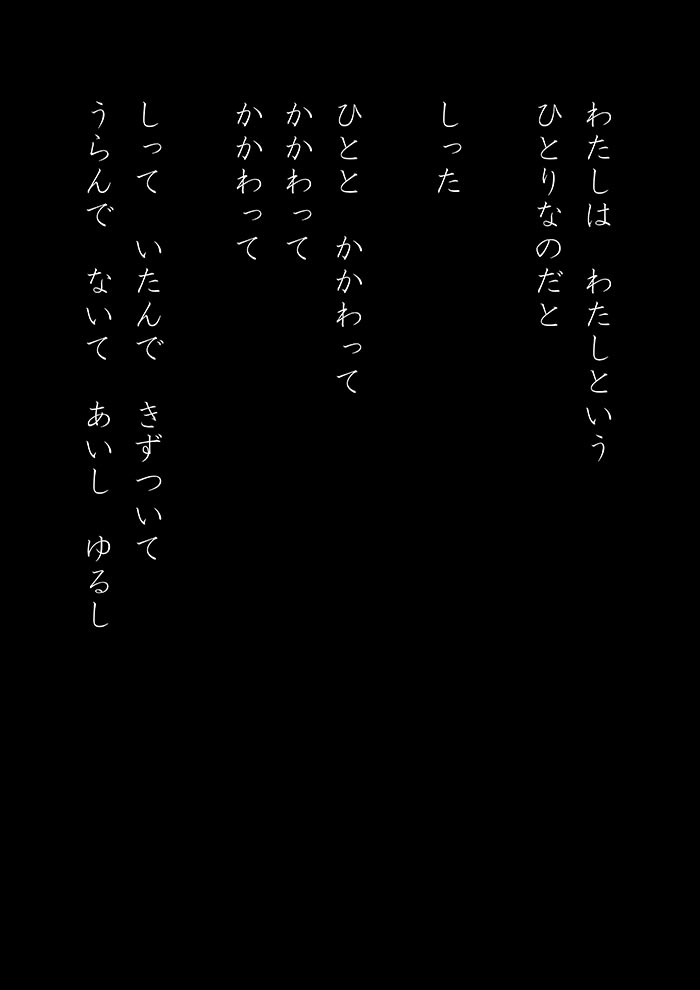 わたしは　わたしという
ひとりなのだと
しった
ひとと　かかわって
かかわって
かかわって
しって　いたんで　きずついて
うらんで　ないて　あいし　ゆるし